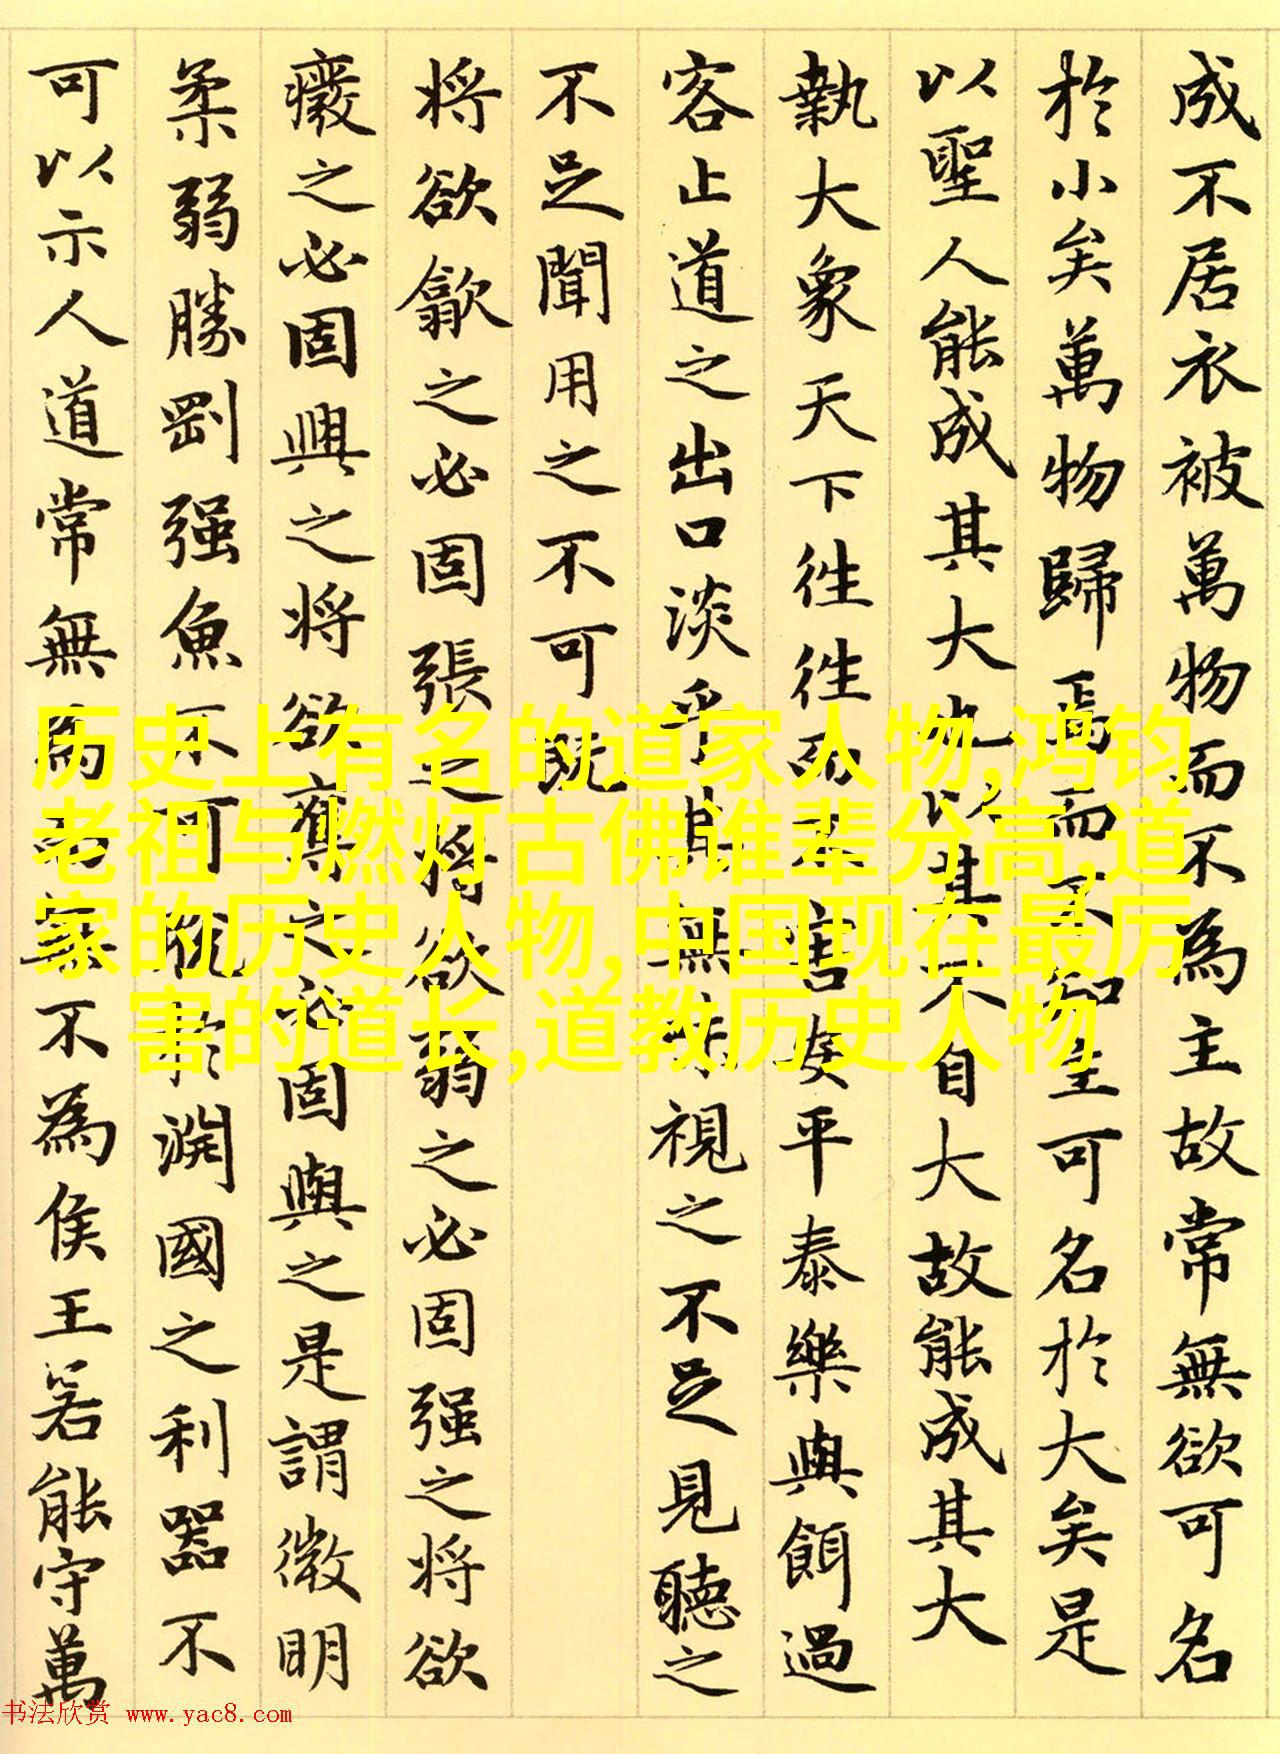 成不居衣被萬物而不為主故常無欲可名
於小矣萬物歸焉而不知主可名於大矣是
以聖人能成其大也以其不自大故能成其大
執大象天下往往而不害安平泰樂與餌過
客止道之出口淡乎其無味視之不足見聽之
不足聞用之不可既
將欲歙之必固張之將欲弱之必固强之將欲
癈之必固興之將欲奪之必固與之是謂微明
柔弱勝剛强魚不可脫於淵國之利器不
可以示人道常無為而無不為侯王若能守萬
历史上有名的道家人物,鸿钧
老祖与燃灯古佛谁辈分高,道
家的历史人物,中国现在最厉
害的道长,道教历史人物
书法欣赏 www.yac8.com